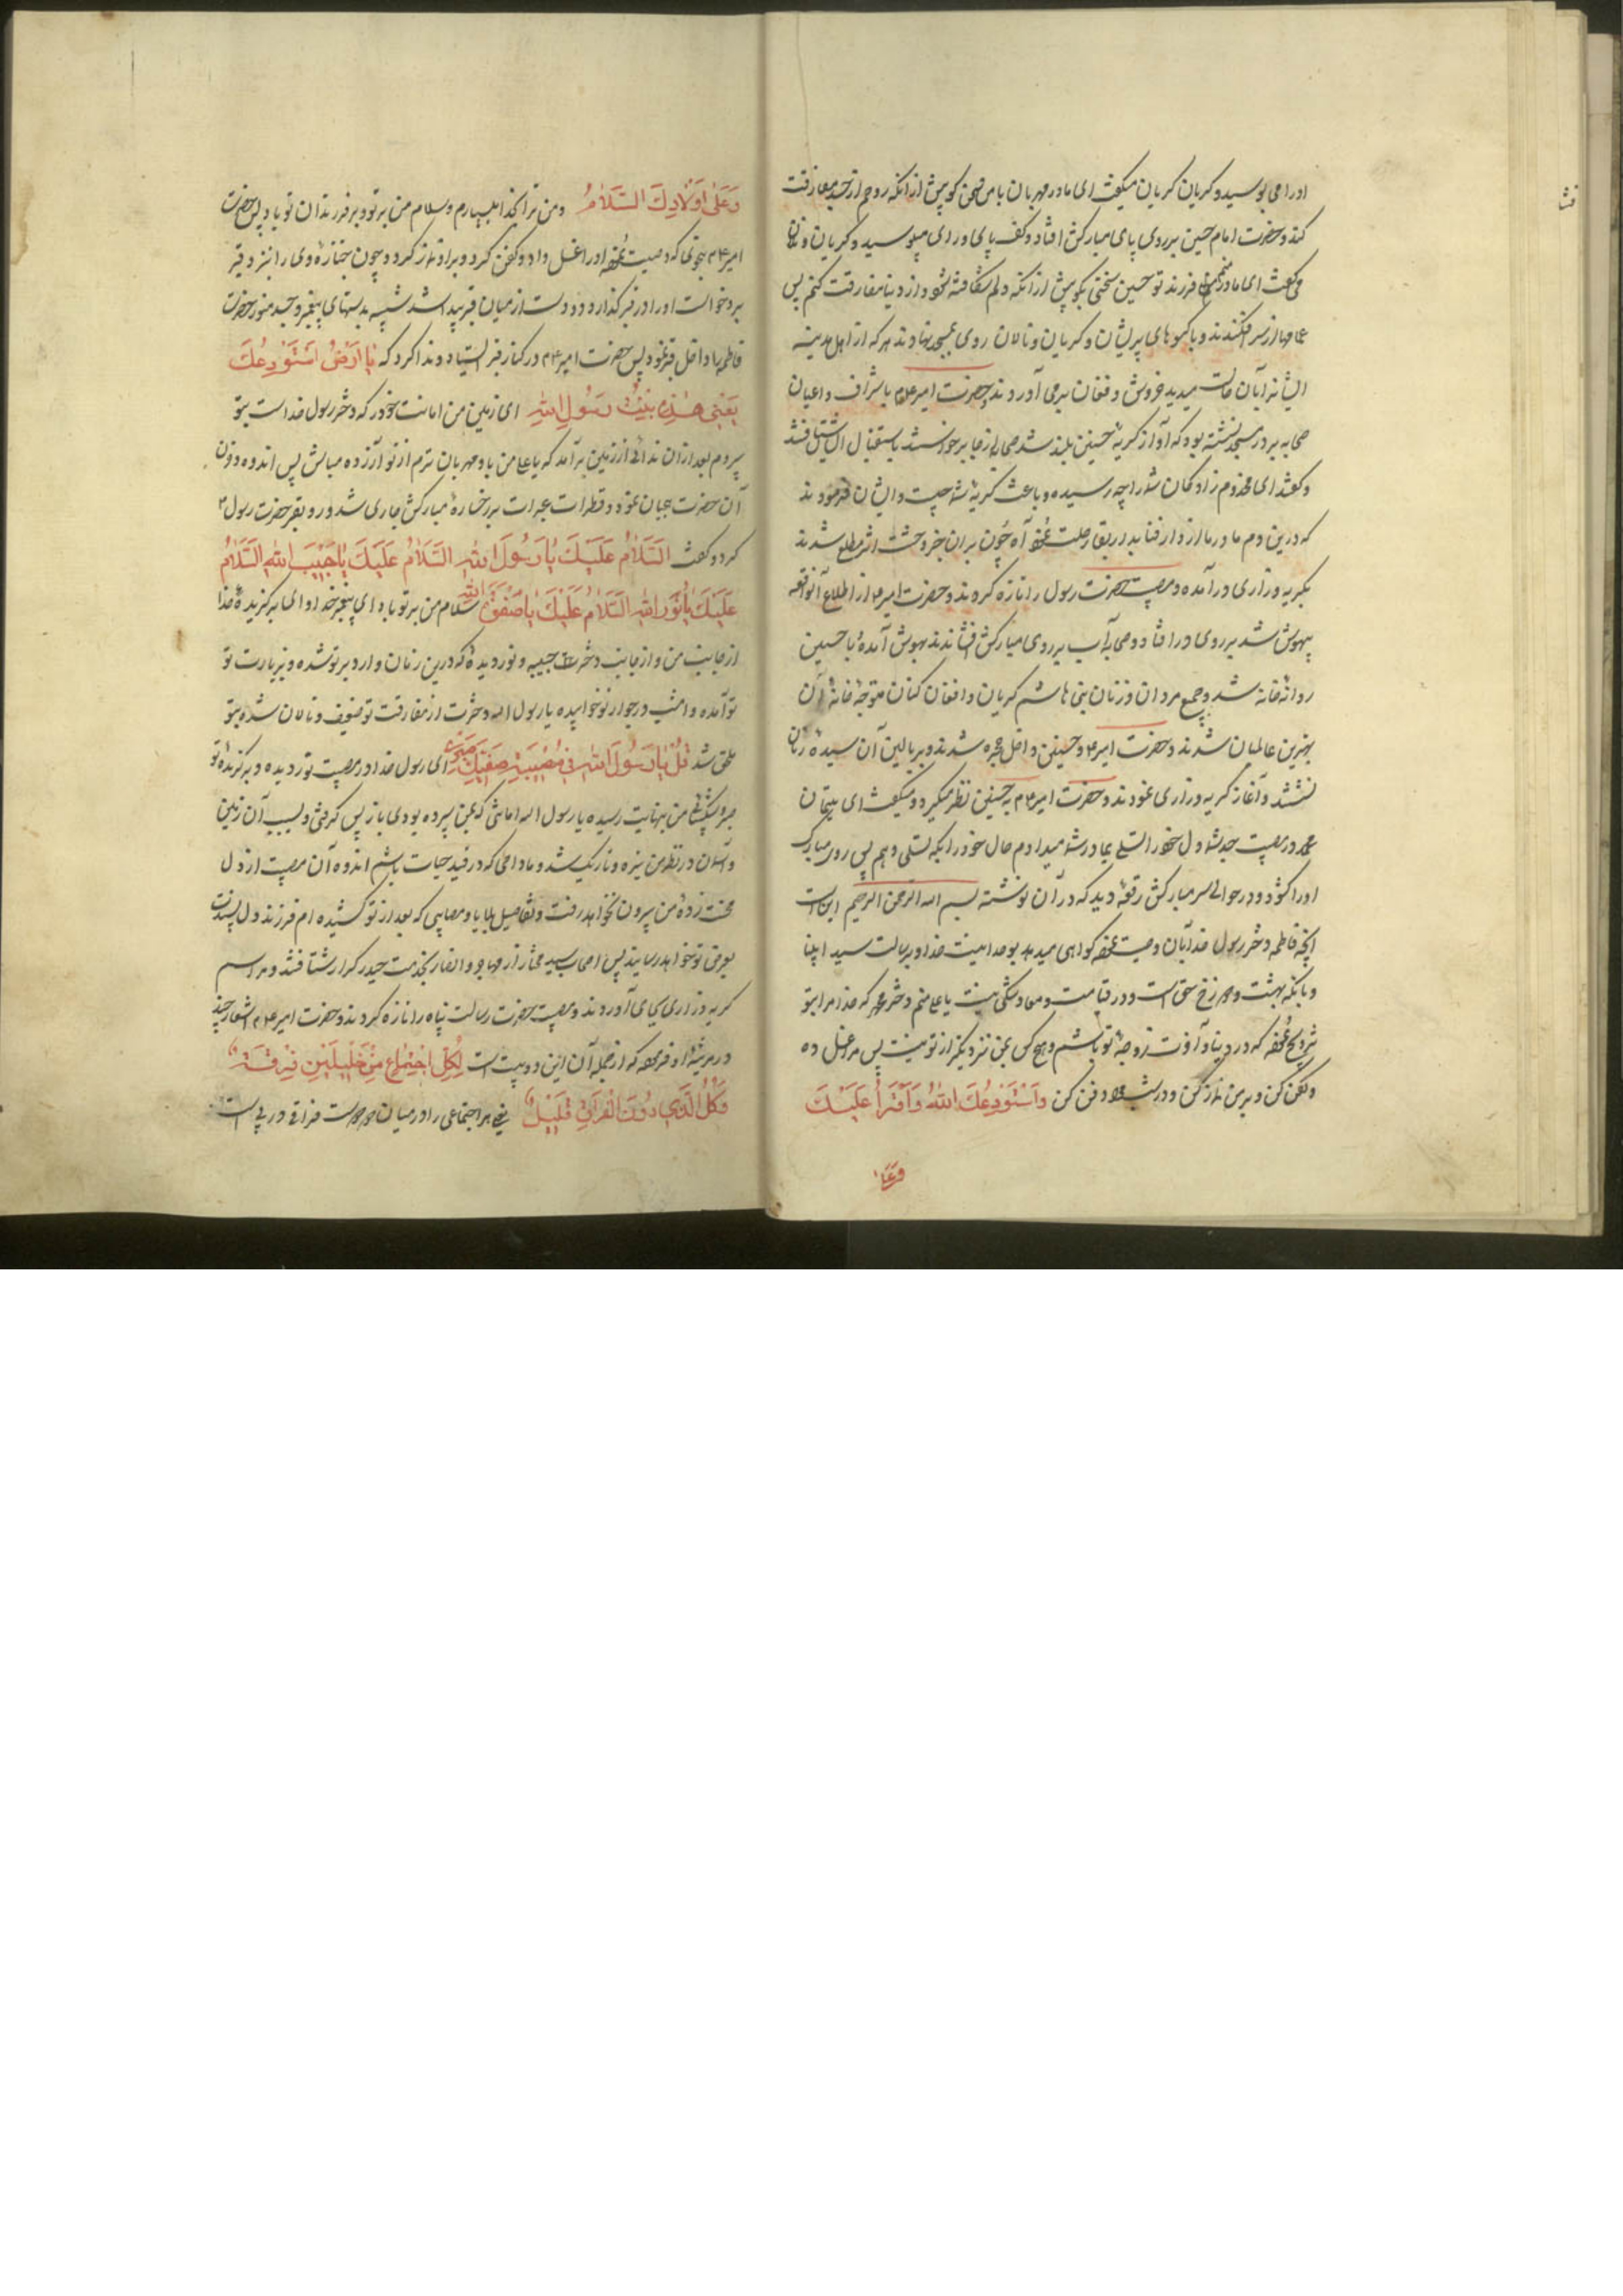 اورا می بوسید و کریان کریان میکفت ای مادر مهربان با من سخن کو پیش از انکه روحم از جسد مفارقت
کند و حضرت امام حسین بر روی پای مبارکش افتاد و کف پای اورا می بوسید و کریان و نالان
می کفت ای مادر منم فرزند تو حسین سخنی بکو پیش از انکه دلم شکافته شود و از دنیا مفارقت کنم پس
عمامها از سر افکندند و با کیسوهای پریشان و کریان و نالان روی بمسجد نهادند هر که از اهل مدینه
ایشانرا بآن حالت میدید خروش و فغان بر می آورد و حضرت امیر با شراف و اعیان
صحابه در مسجد نشسته بود که آواز کریه حسنین بلند شد صحابه از جا برخواستند باستقبال ایشان شتافتند
و کفتند ای مخدوم زادکان شمارا چه رسیده و باعث کریه شما چیست و ایشان فرمودند
که درین دم مادر ما از دار فنا بدار بقا رحلت نمود آه چون بران خبر وحشت اثر مطلع شدند
بکریه و زاری در آمده و مصیبت حضرت رسول را تازه کردند و حضرت امیر از اطلاع آنواقعه
بیهوش شد بر روی در افتاد و صحابه آب بر روی مبارکش افشاندند بهوش آمده با حسنین
روانه خانه شد و جمیع مردان و زنان بنی هاشم کریان و افغان کنان متوجه خانه آن
بهترین عالمیان شدند و حضرت امیر و حسنین داخل حجره شدند و بر بالین آن سیده زنان
نشستند و آغاز کریه و زاری نمودند و حضرت امیر به حسنین نظر میکرد و میکفت ای یتیمان
محمد در مصیبت جد شما دل خودرا تسلی بمادر شما میدادم حال خودرا بکه تسلی دهم پس روی مبارک
اورا کشود و در حوالی سر مبارکش رقعه دید که در آن نوشته بسم الله الرحمن الرحیم این است
آنچه فاطمه دختر رسول خدا بآن وصیت نموده کواهی میدهد بوحدانیت خدا و برسالت سید انبیا
و بانکه بهشت و دوزخ حق است و در قیامت و معاد شکی نیست یا علی منم دختر محمد که خدا مرا بتو
تزویج نموده که در دنیا و آخرت زوجه تو باشم و هیچ کس بمن نزدیکتر از تو نیست پس مرا غسل ده
و کفن کن و بر من نماز کن و در شب دفن کن و استودعک الله و اقرأ علیک
و علی اولادک السلام و من ترا بخدا میسپارم و سلام من بر تو و بر فرزندان تو باد پس حضرت
امیر بنحوی که وصیت نموده اورا غسل داد و کفن کرد و بر او نماز کرد و چون جنازه وی را بنزد قبر
برد و خواست اورا در قبر کذارد دو دست از میان قبر پیدا شد شبیه بدستهای پیغمبر و جسد منور حضرت
فاطمه را داخل قبر نمود پس حضرت امیر در کنار قبر ایستاد و ندا کرد که یا ارض استودعک
یعنی هذه بنت رسول الله ای زمین من امانت خودرا که دختر رسول خداست بتو
سپردم بعد از ان ندائی از زمین بر آمد که یا علی من باو مهربان ترم از تو آزرده مباش پس اندوه و حزن
آن حضرت هیجان نمود و قطرات عبرات بر رخساره مبارکش جاری شد و رو بقبر حضرت رسول
کرد و کفت السلام علیک یا رسول الله السلام علیک یا حبیب الله السلام
علیک یا نور الله السلام علیک یا صفوة الله سلام من بر تو باد ای پیغمبر خدا و ای برکزیده خدا
از جانب من و از جانب دخترت حبیبه و نور دیده که درین زمان وارد بر تو شده و بزیارت تو
تو آمده و امشب در جوار تو خوابیده یا رسول الله دخترت از مفارقت تو ضعیف و نالان شد و بتو
ملحق شد قل یا رسول الله فی مصیبة صفیتک صبری ای رسول خدا در مصیبت نور دیده و برکزیده تو
صبر و شکیبائی من بنهایت رسیده یا رسول الله امانتی که بمن سپرده بودی باز پس کرفتی و بسبب آن زمین
و آسمان در نظر من تیره و تاریک شد و مادامی که در قید حیات باشم اندوه آن مصیبت از دل
محنت زده من بیرون نخواهد رفت و تفاصیل بلایا و مصایبی که بعد از تو کشیده ام فرزند دل پسندت
بعرض تو خواهد رسانید پس اصحاب سید مختار از مهاجر و انصار بخدمت حیدر کرار شتافتند و مراسم
کریه و زاری بجای آوردند و مصیبت حضرت رسالت پناه را تازه کردند و حضرت امیر اشعار چند
در مرثیه او فرموده که از جمله آن این دو بیت است لکل اجتماع من خلیلین فرقة
و کل الذی دون الفراق قلیل یعنی هر اجتماعی را در میان دو دوست فراقی در پی است